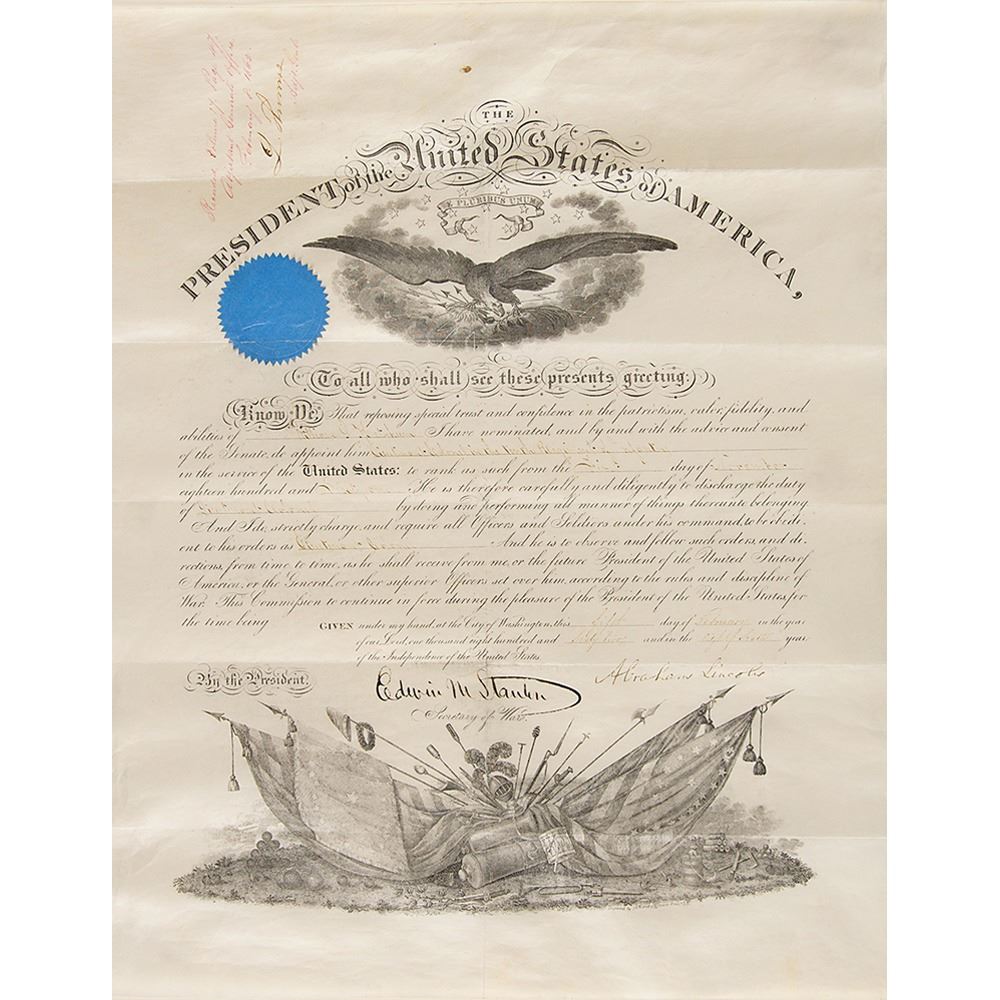 THE
PRESIDENT of the United States of AMERICA,
E PLURIBUS UNUM
To all who shall see these presents greeting:
Know Ye, That reposing special trust and confidence in the patriotism, valor, fidelity, and
abilities of I have nominated, and by and with the advice and consent
of the Senate, do appoint him
in the service of the United States: to rank as such from the day of
eighteen hundred and He is therefore carefully and diligently to discharge the duty
of by doing and performing all manner of things thereunto belonging.
And I do strictly charge, and require all Officers and Soldiers under his command, to be obedi-
ent to his orders as And he is to observe and follow such orders, and di-
rections, from time to time, as he shall receive from me, or the future President of the United States of
America, or the General, or other superior Officers set over him, according to the rules and discipline of
War. This Commission to continue in force during the pleasure of the President of the United States, for
the time being.
GIVEN under my hand, at the City of Washington, this day of February in the year
of our Lord, one thousand eight hundred and and in the year
of the Independence of the United States.
By the President,
Abraham Lincoln
Edwin M Stanton
Secretary of War.